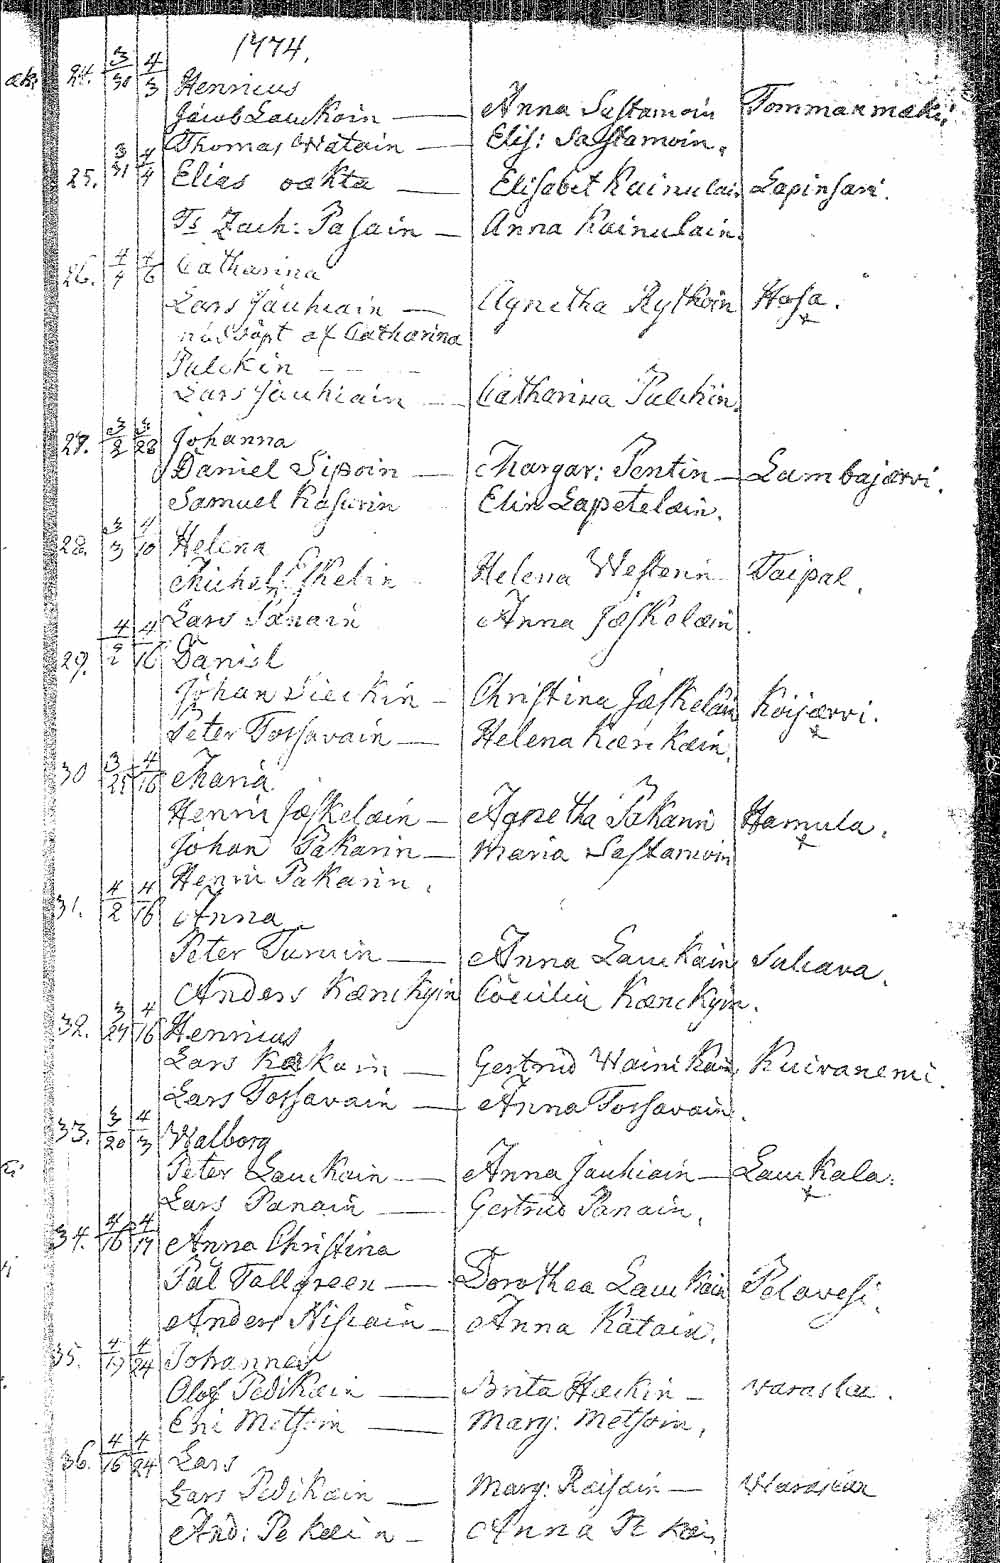 1774.
24. 3/30 4/3 Henricus
Jacob Lauckain — Anna Sastamoin Tommanmäki,
Thomas Watain — Elis: Sastamoin.
25. 3/31 4/4 Elias oækta — Elisabet Kainulain Lapinsari.
Ts Zach: Pasain — Anna Kainulain.
26. 4/4 4/6 Catharina
Lars Jauhiain — Agnetha Rytkoin Hasa.
nöddöpt af Catharina
Pulckin
Lars Jauhiain — Catharina Pulckin.
27. 3/2 3/28 Johanna
Daniel Sipoin — Margar: Pentin — Lambajærvi.
Samuel Kasurin Elin Lapetelain.
28. 3/3 4/10 Helena
Michel Eskelin Helena Westerin Taipal.
Lars Tänain Anna Jæskelæin
29. 4/2 4/16 Daniel
Johan Sieckin — Christina Jæskeläin Koijærvi.
Peter Tossavain — Helena Kærckæin.
30 3/25 4/16 Maria
Henric Jæskelæin — Agnetha Pakarin Hamula.
Johan Pakarin — Maria Sastamoin
Henric Pakarin.
31. 4/2 4/16 Anna
Peter Turuin — Anna Lauckain Suhava.
Anders Kænckyin Coecilia Kænckyin.
32. 3/27 4/16 Henricus
Lars Kækain — Gertrud Wainikain Kuivanemi.
Lars Tossavain — Anna Tossavain.
33. 3/20 4/3 Walborg
Peter Lauckain — Anna Jauhiain — Lauckala.
Lars Panain — Gertrud Panain.
34. 4/16 4/17 Anna Christina
Pål Tallgreen — Dorothea Lauckain Polovesi.
Anders Hiskain — Anna Katain.
35. 4/17 4/24 Johannes
Olof Pedikæin — Brita Hæckin — Varaslax.
Eric Metsoin — Marg: Metsoin.
36. 4/16 4/24 Lars
Lars Pedikæin — Marg: Raisain —
And: Pekæin — Anna